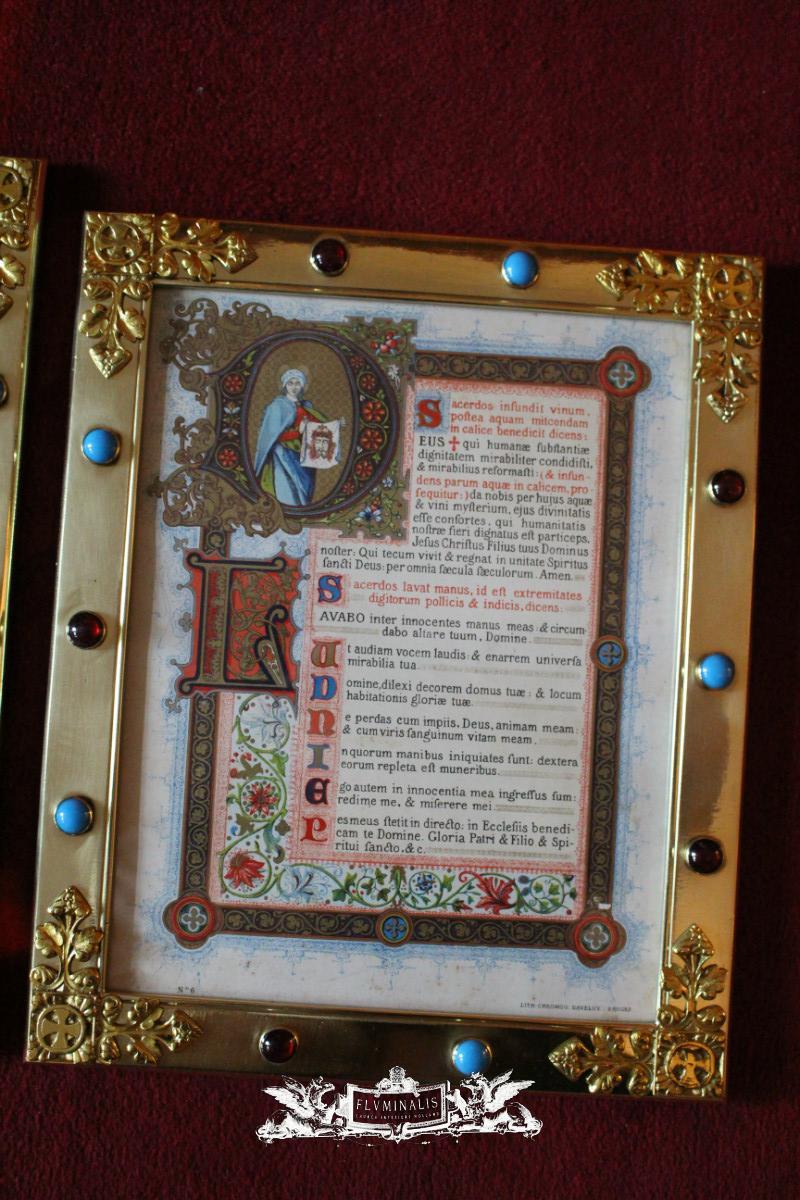 Sacerdos infundit vinum,
poſtea aquam mitcendam
in calice benedicit dicens:
DEUS ✝ qui humanæ ſubſtantiæ
dignitatem mirabiliter condidiſti,
& mirabilius reformaſti: (& infun-
dens parum aquæ in calicem, pro-
ſequitur:) da nobis per hujus aquæ
& vini myſterium, ejus divinitatis
eſſe conſortes, qui humanitatis
noſtræ fieri dignatus eſt particeps,
Jeſus Chriſtus Filius tuus Dominus
noſter: Qui tecum vivit & regnat in unitate Spiritus
ſancti Deus: per omnia ſæcula ſæculorum. Amen.
Sacerdos lavat manus, id eſt extremitates
digitorum pollicis & indicis, dicens:
LAVABO inter innocentes manus meas: & circum-
dabo altare tuum, Domine.
Ut audiam vocem laudis: & enarrem univerſa
mirabilia tua.
Domine, dilexi decorem domus tuæ: & locum
habitationis gloriæ tuæ.
Ne perdas cum impiis, Deus, animam meam:
& cum viris ſanguinum vitam meam.
In quorum manibus iniquiates ſunt: dextera
eorum repleta eſt muneribus.
Ego autem in innocentia mea ingreſſus ſum:
redime me, & miſerere mei.
Pes meus ſtetit in directo: in Eccleſiis benedi-
cam te Domine. Gloria Patri & Filio & Spi-
ritui ſancto. & c.
Nº 6
LITH. CHROMOG. DAVELUY. BRUGES
FLVMINALIS
CHURCH INTERIORS HOLLAND